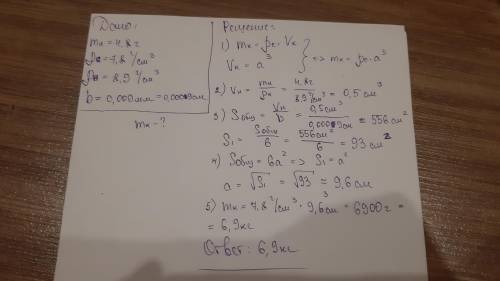 Дано:
mн = 4,8 г
ρс = 7,8 г/см³
ρн = 8,9 г/см³
b = 0,009мм = 0,0009см
mк - ?
Решение:
1) mк = ρс · Vк
Vк = a³
} => mк = ρс · a³
2) Vн = mн/ρн = 4,8г/8,9г/см³ = 0,5 см³
3) Sобщ = Vн/b = 0,5см³/0,0009см = 556см²
S₁ = Sобщ/6 = 556см²/6 = 93 см²
4) Sобщ = 6a² => S₁ = a²
a = √S₁ = √93 ≈ 9,6 см
5) mк = 7,8 г/см³ · 9,6³см³ = 6900 г =
= 6,9кг
Ответ: 6,9кг